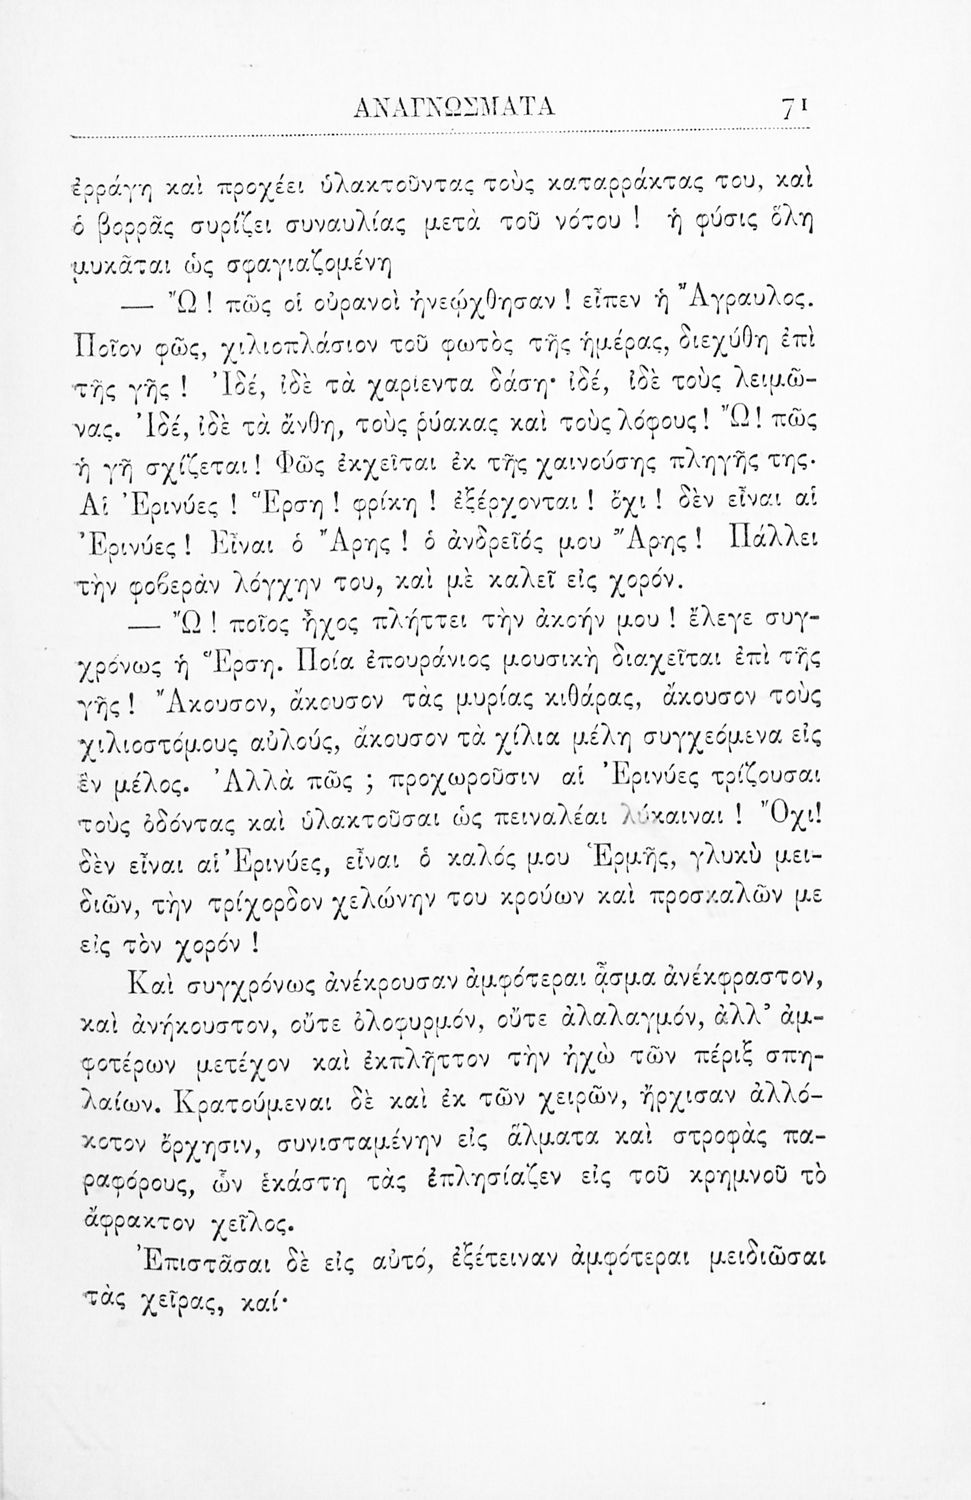 ΑΝΑΓΝΩΣΜΑΤΑ 71
ἐρράγη καὶ προχέει ὑλακτοῦντας τοὺς καταρράκτας του, καὶ
ὁ βορρᾶς συρίζει συναυλίας μετὰ τοῦ νότου ! ἡ φύσις ὅλη
μυκᾶται ὡς σφαγιαζομένη
— Ὢ ! πῶς οἱ οὐρανοὶ ἠνεῴχθησαν ! εἶπεν ἡ Ἄγραυλος.
Ποῖον φῶς, χιλιοπλάσιον τοῦ φωτὸς τῆς ἡμέρας, διεχύθη ἐπὶ
τῆς γῆς ! Ἰδέ, ἰδὲ τὰ χαρίεντα δάση· ἰδέ, ἰδὲ τοὺς λειμῶ-
νας. Ἰδέ, ἰδὲ τὰ ἄνθη, τοὺς ῥύακας καὶ τοὺς λόφους! Ὢ! πῶς
ἡ γῆ σχίζεται! Φῶς ἐκχεῖται ἐκ τῆς χαινούσης πληγῆς της.
Αἱ Ἐρινύες ! Ἕρση ! φρίκη ! ἐξέρχονται ! ὄχι ! δὲν εἶναι αἱ
Ἐρινύες ! Εἶναι ὁ Ἄρης ! ὁ ἀνδρεῖός μου Ἄρης ! Πάλλει
τὴν φοβερὰν λόγχην του, καὶ μὲ καλεῖ εἰς χορόν.
— Ὢ ! ποῖος ἦχος πλήττει τὴν ἀκοήν μου ! ἔλεγε συγ-
χρόνως ἡ Ἕρση. Ποία ἐπουράνιος μουσικὴ διαχεῖται ἐπὶ τῆς
γῆς ! Ἄκουσον, ἄκουσον τὰς μυρίας κιθάρας, ἄκουσον τοὺς
χιλιοστόμους αὐλούς, ἄκουσον τὰ χίλια μέλη συγχεόμενα εἰς
ἓν μέλος. Ἀλλὰ πῶς ; προχωροῦσιν αἱ Ἐρινύες τρίζουσαι
τοὺς ὀδόντας καὶ ὑλακτοῦσαι ὡς πειναλέαι λύκαιναι ! Ὄχι!
δὲν εἶναι αἱ Ἐρινύες, εἶναι ὁ καλός μου Ἑρμῆς, γλυκὺ μει-
διῶν, τὴν τρίχορδον χελώνην του κρούων καὶ προσκαλῶν με
εἰς τὸν χορόν !
Καὶ συγχρόνως ἀνέκρουσαν ἀμφότεραι ᾆσμα ἀνέκφραστον,
καὶ ἀνήκουστον, οὔτε ὀλοφυρμόν, οὔτε ἀλαλαγμόν, ἀλλ’ ἀμ-
φοτέρων μετέχον καὶ ἐκπλῆττον τὴν ἠχὼ τῶν πέριξ σπη-
λαίων. Κρατούμεναι δὲ καὶ ἐκ τῶν χειρῶν, ἤρχισαν ἀλλό-
κοτον ὄρχησιν, συνισταμένην εἰς ἅλματα καὶ στροφὰς πα-
ραφόρους, ὧν ἑκάστη τὰς ἐπλησίαζεν εἰς τοῦ κρημνοῦ τὸ
ἄφρακτον χεῖλος.
Ἐπιστᾶσαι δὲ εἰς αὐτό, ἐξέτειναν ἀμφότεραι μειδιῶσαι
τὰς χεῖρας, καί·